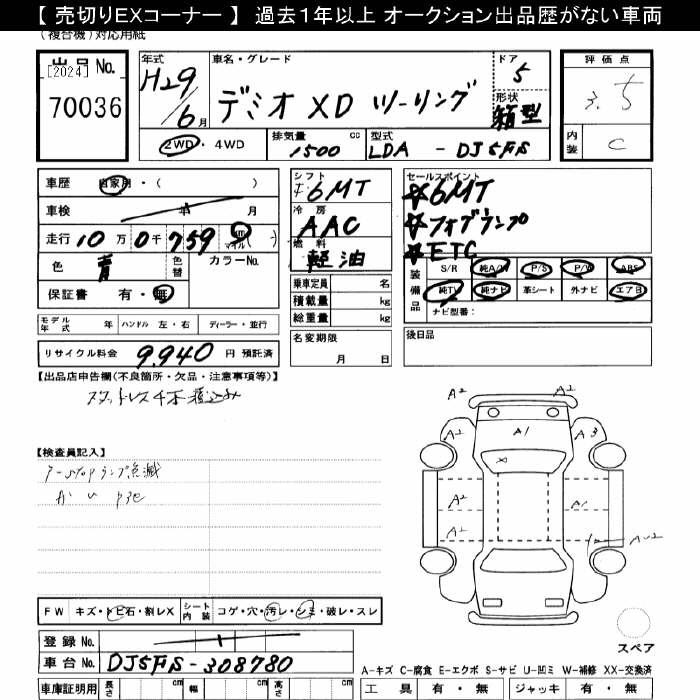 【 売切りEXコーナー 】 過去１年以上 オークション出品歴がない車両
(複合機)対応用紙
出品 No.
[2024]
70036
年式
H29/6月
車名・グレード
デミオ XD ツーリング
ドア
5
形状
箱型
評価点
3.5
内装
C
2WD・4WD
排気量
1500 cc
型式
LDA - DJ5FS
車歴 自家用・( )
車検 年 月
走行 10万0千759 km マイル ( )
色 青 色替 カラーNo.
保証書 有・無
シフト
F 6MT
冷房
AAC
燃料
軽油
乗車定員 名
積載量 kg
総重量 kg
セールスポイント
☆6MT
☆フォグランプ
☆ETC
装備品
S/R 純A/W P/S P/W ABS
純TV 純ナビ 革シート 外ナビ エアB
ナビ型番:
モデル年式 年 ハンドル 左・右 ディーラー・並行
リサイクル料金 9,940 円 預託済
名変期限
月 日
後日品
【出品店申告欄(不良箇所・欠品・注意事項等)】
スタットレス4本積込み
【検査員記入】
ランプ点滅
A2 A2
A2 A1 A3
X
A2 A1
A2
スペア
FW キズ・トビ石・割レX シート内装 コゲ・穴・汚レ・シミ・破レ・スレ
登録 No.
車台 No. DJ5FS-308780
A-キズ C-腐食 E-エクボ S-サビ U-凹ミ W-補修 XX-交換済
車庫証明用 長さ cm 幅 cm 高さ cm
工具 有・無 ジャッキ 有・無